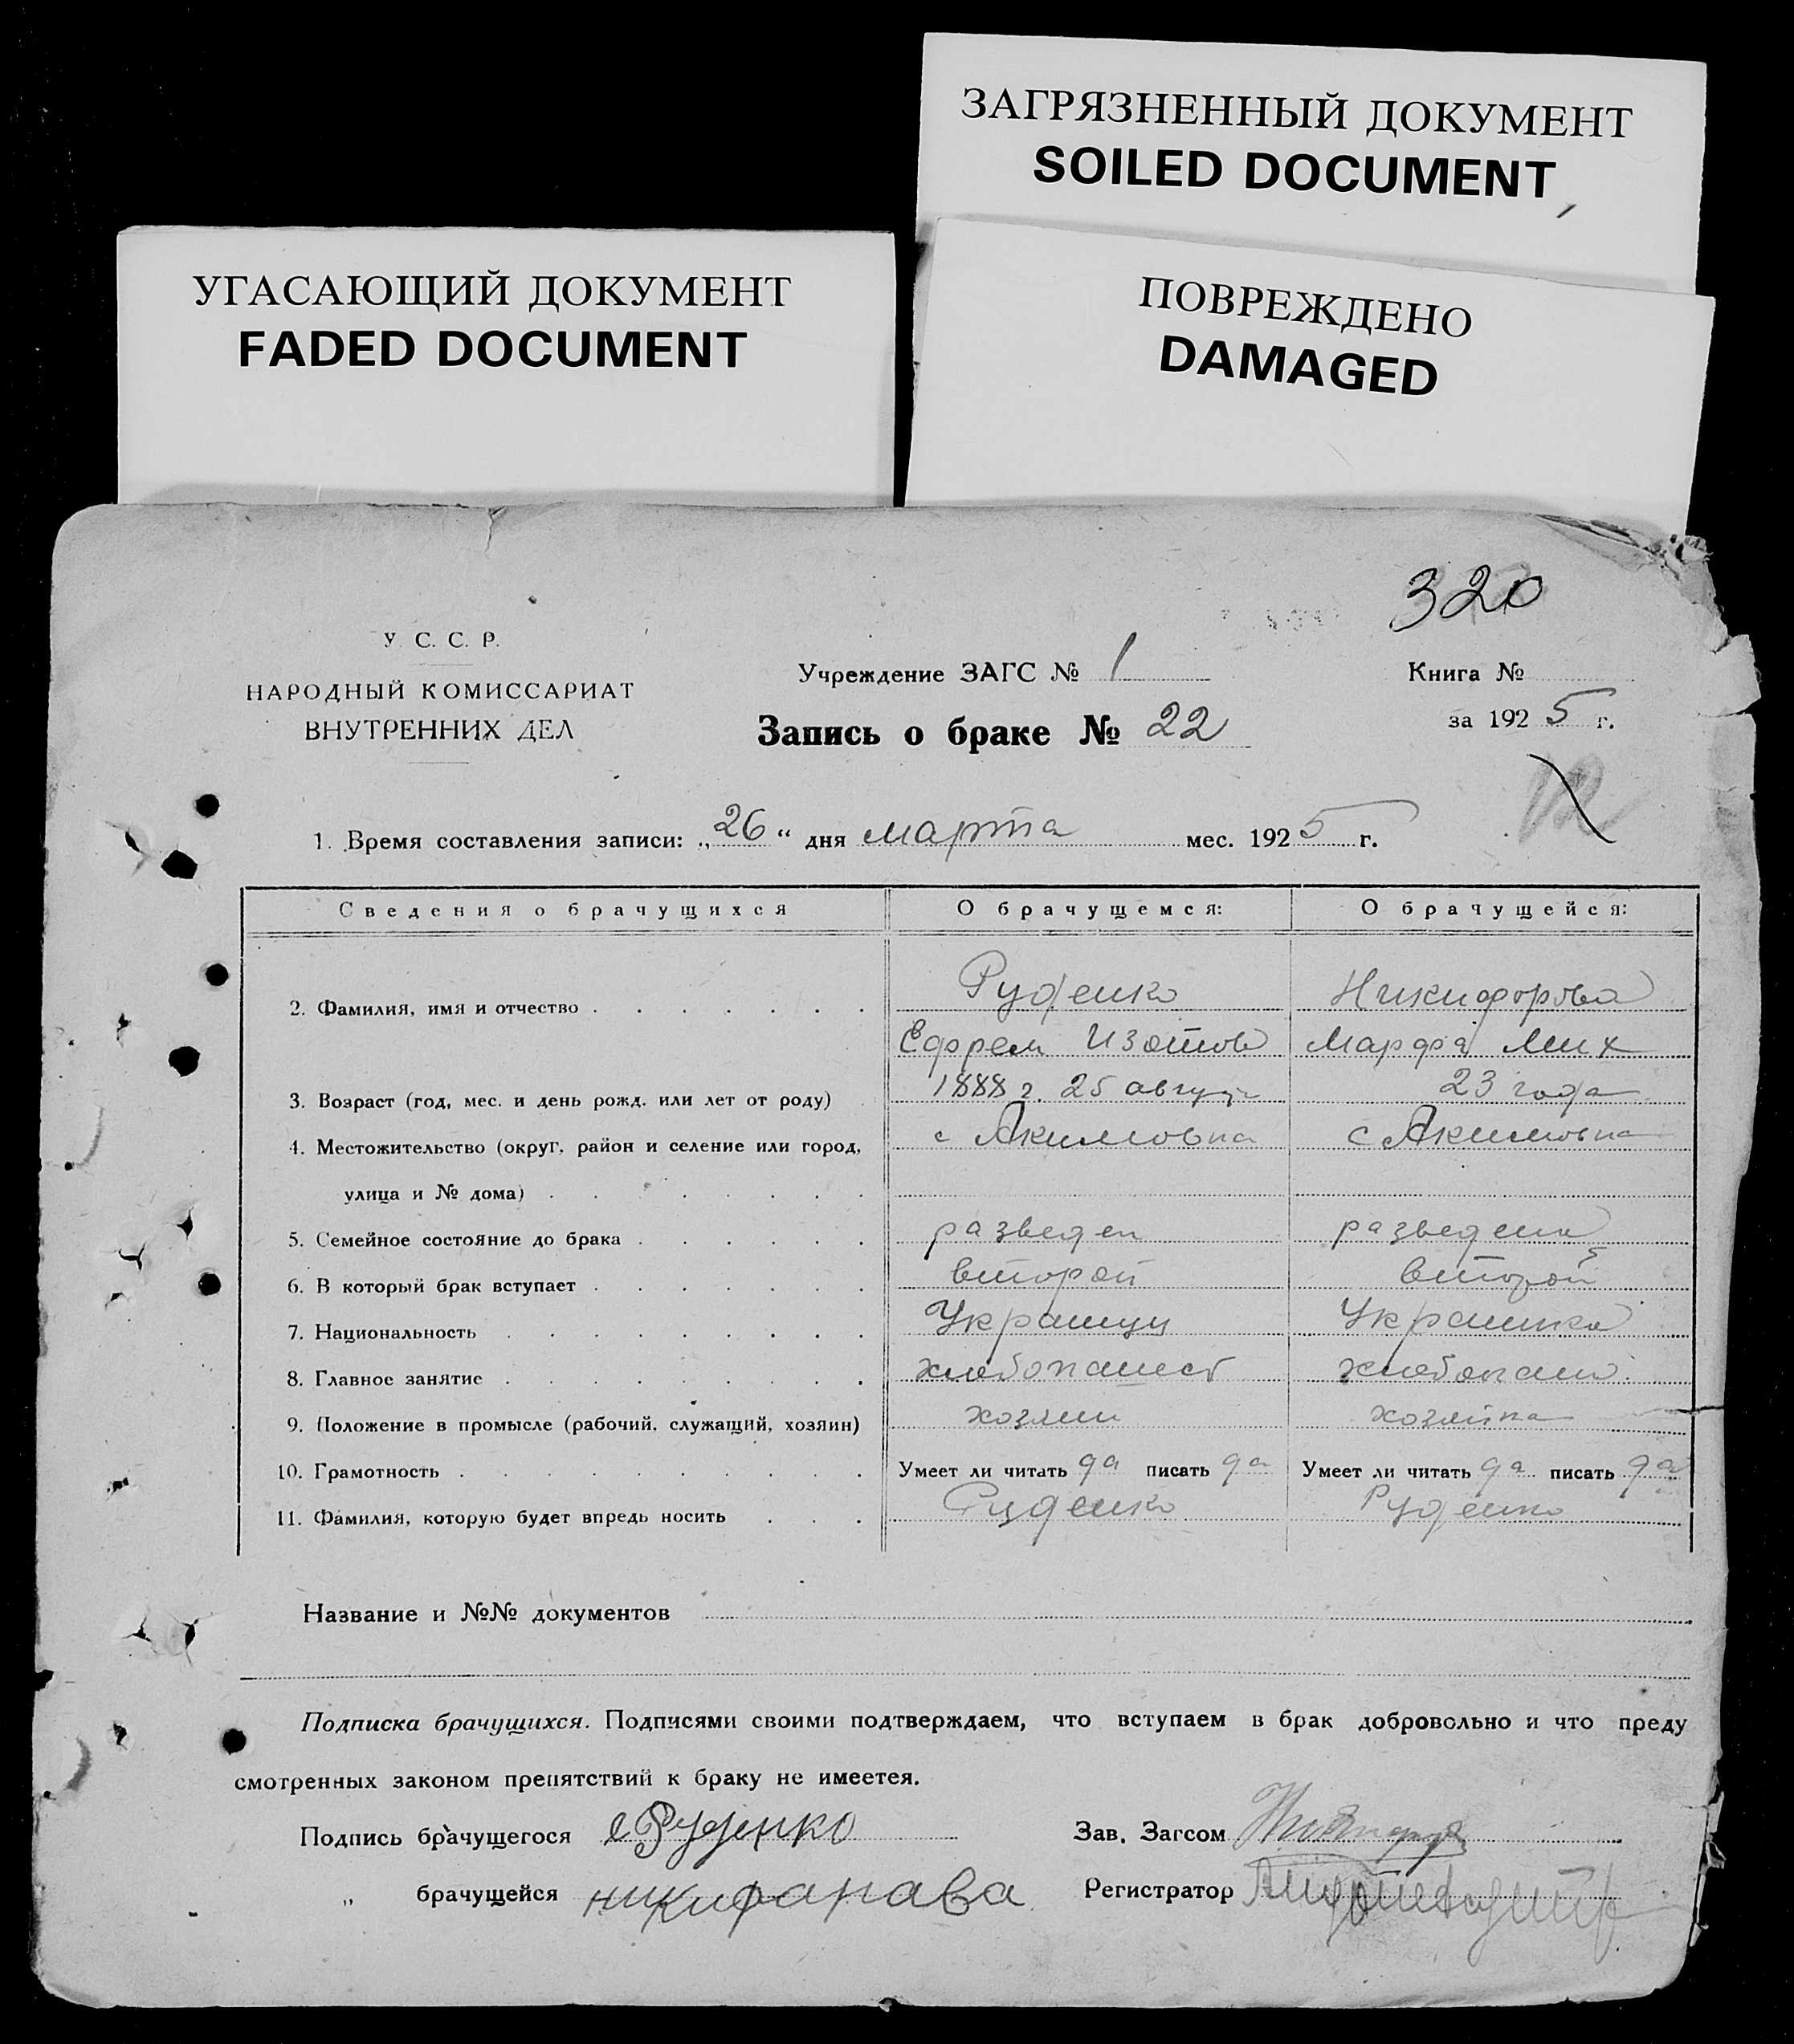 ЗАГРЯЗНЕННЫЙ ДОКУМЕНТ
SOILED DOCUMENT
УГАСАЮЩИЙ ДОКУМЕНТ
FADED DOCUMENT
ПОВРЕЖДЕНО
DAMAGED
320
У. С. С. Р.
НАРОДНЫЙ КОМИССАРИАТ
ВНУТРЕННИХ ДЕЛ
Учреждение ЗАГС № 1
Книга №
Запись о браке № 22
за 1925 г.
1. Время составления записи: „26“ дня марта мес. 1925 г.
Сведения о брачущихся О брачущемся: О брачущейся:
2. Фамилия, имя и отчество Руденко Никифорова
Ефрем Изотов Марфа Мих
3. Возраст (год, мес. и день рожд. или лет от роду) 1888 г. 25 август 23 года
4. Местожительство (округ, район и селение или город, с Акимовка с Акимовка
улица и № дома)
5. Семейное состояние до брака разведен разведена
6. В который брак вступает второй второй
7. Национальность Украинец Украинка
8. Главное занятие хлебопашест хлебопаш.
9. Положение в промысле (рабочий, служащий, хозяин) хозяин хозяйка
10. Грамотность Умеет ли читать да писать да Умеет ли читать да писать да
11. Фамилия, которую будет впредь носить Руденко Руденко
Название и №№ документов
Подписка брачущихся. Подписями своими подтверждаем, что вступаем в брак добровольно и что преду
смотренных законом препятствий к браку не имеетея.
Подпись брачущегося е Руденко Зав. Загсом
„ брачущейся никифарава Регистратор